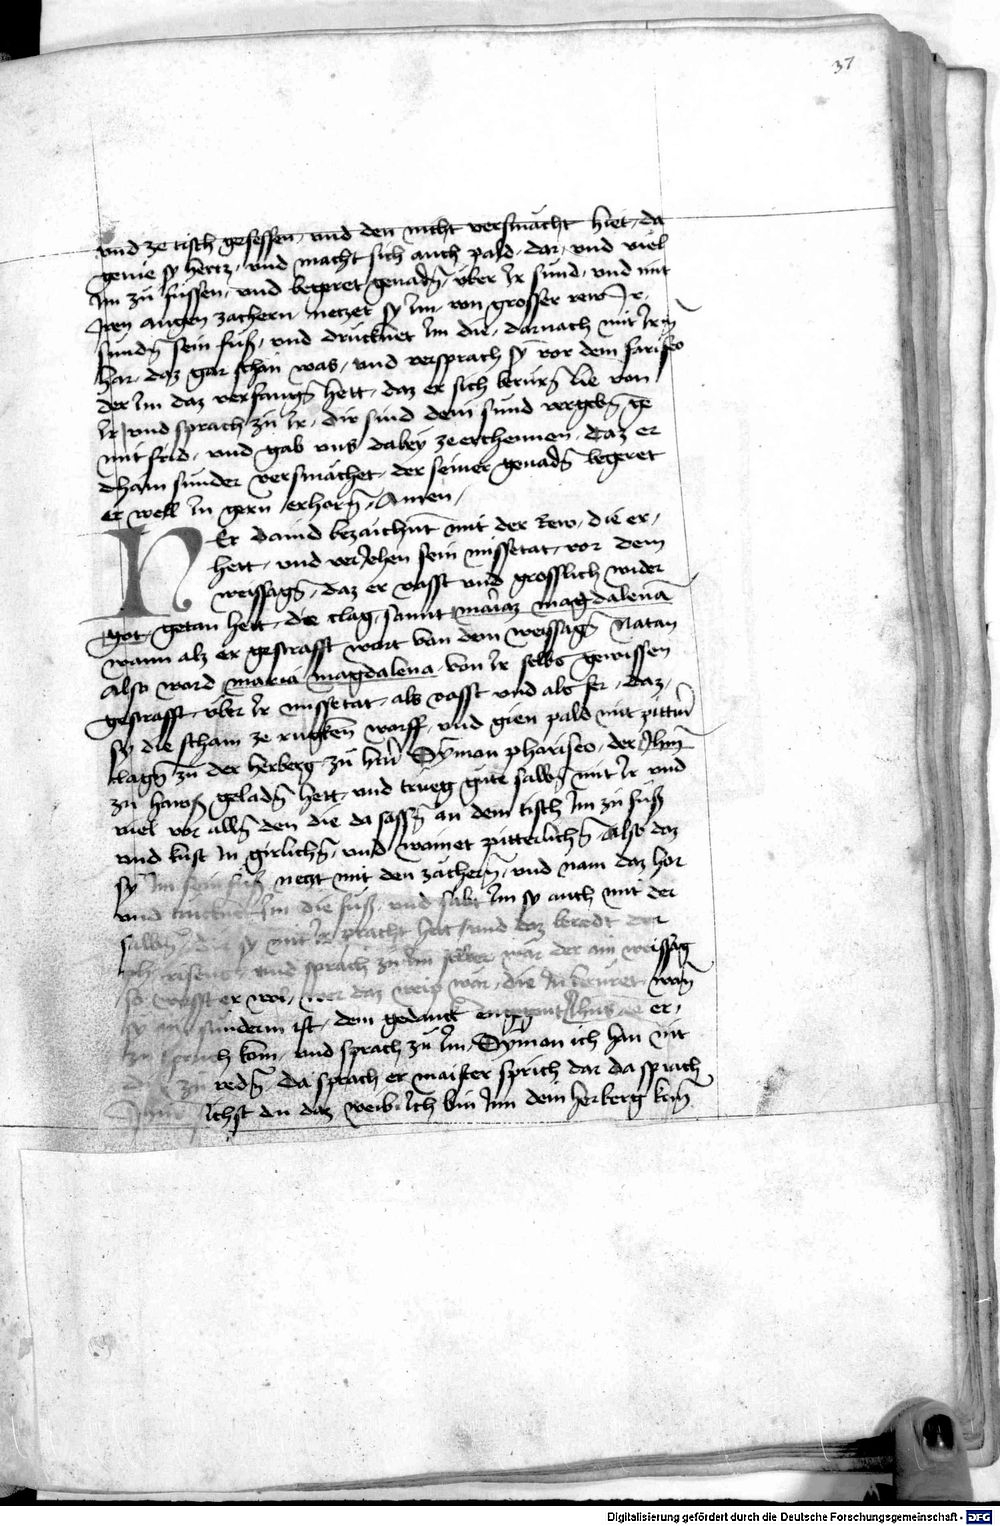 37
vnd ze tisch gesessen, vnd den nicht versmächt hiet, da
genie sy hertz, vnd macht sich auch pald, dar, vnd viel
Im zu füssen, vnd begeret genadn̄, über Ir sund, vnd mit
Iren augen zachern netzet sy Im, von grosser rew Ir,
sundn̄ sein fuß, vnd drucknet Im die, darnach mit Irm̄
har, daz gar schän was, vnd versprach sy vor dem fariseo
der Im daz verfangn̄ hett, daz er sich berürn̄ lie von
Ir vnd sprach zu Ir, dir sind dein sund vergebn̄ ge
mit frid, vnd gab vns dabey ze erchennen, daz er
chain sunder versmächet, der seiner genadn̄ begeret
er well In gern erhorn̄, Amen,
Et Dauid bezaichnt mit der Rew, die er,
hett, vnd veriehen sein missetat, vor dem
weissagn̄, daz er vasst vnd grosslich wider
got, getan hett, die clag, samt maria magdalena
wann alz er gestrafft wart van dem weyssagn̄ Natan
Also ward maria magdalena von Ir selbs gewissen
gestrafft, über Ir missetat, als vasst vnd als ser, daz,
sy die scham ze rugken̄ warff, vnd gien pald mit pittern̄
clagn̄ zu der herberg zu hern̄ Symon phariseo, der Ihm̄
zu haws geladn̄ hett, vnd trueg güte salbn̄ mit Ir vnd
viel vor alln̄ den die da sassn̄ an dem tisch Im zu fuß
vnd kust In girlichn̄, vnd wainet pitterlichn̄ Also daz
sy Im sein fuß netzt mit den zächern̄, vnd nam daz hor
vnd trucknet Im die fuß, vnd salbt Im sy auch mit der
salbn̄, die sy mit Ir pracht hett, vnd daz beredt der
phariseus, vnd sprach zu Im selber wär der ain weissag
so wesst er wol, wer daz weip wär, die In berüret wan̄
sy ain sunderin ist, dem gedanck engegent Ihus er,
zu spruch kom, vnd sprach zu Im, Symon ich han mit
dir zu redn̄ Da sprach er maister sprich dar da sprach
sichst du daz weib, Ich bin Inn dein herberg kom̄
Digitalisierung gefördert durch die Deutsche Forschungsgemeinschaft - DFG